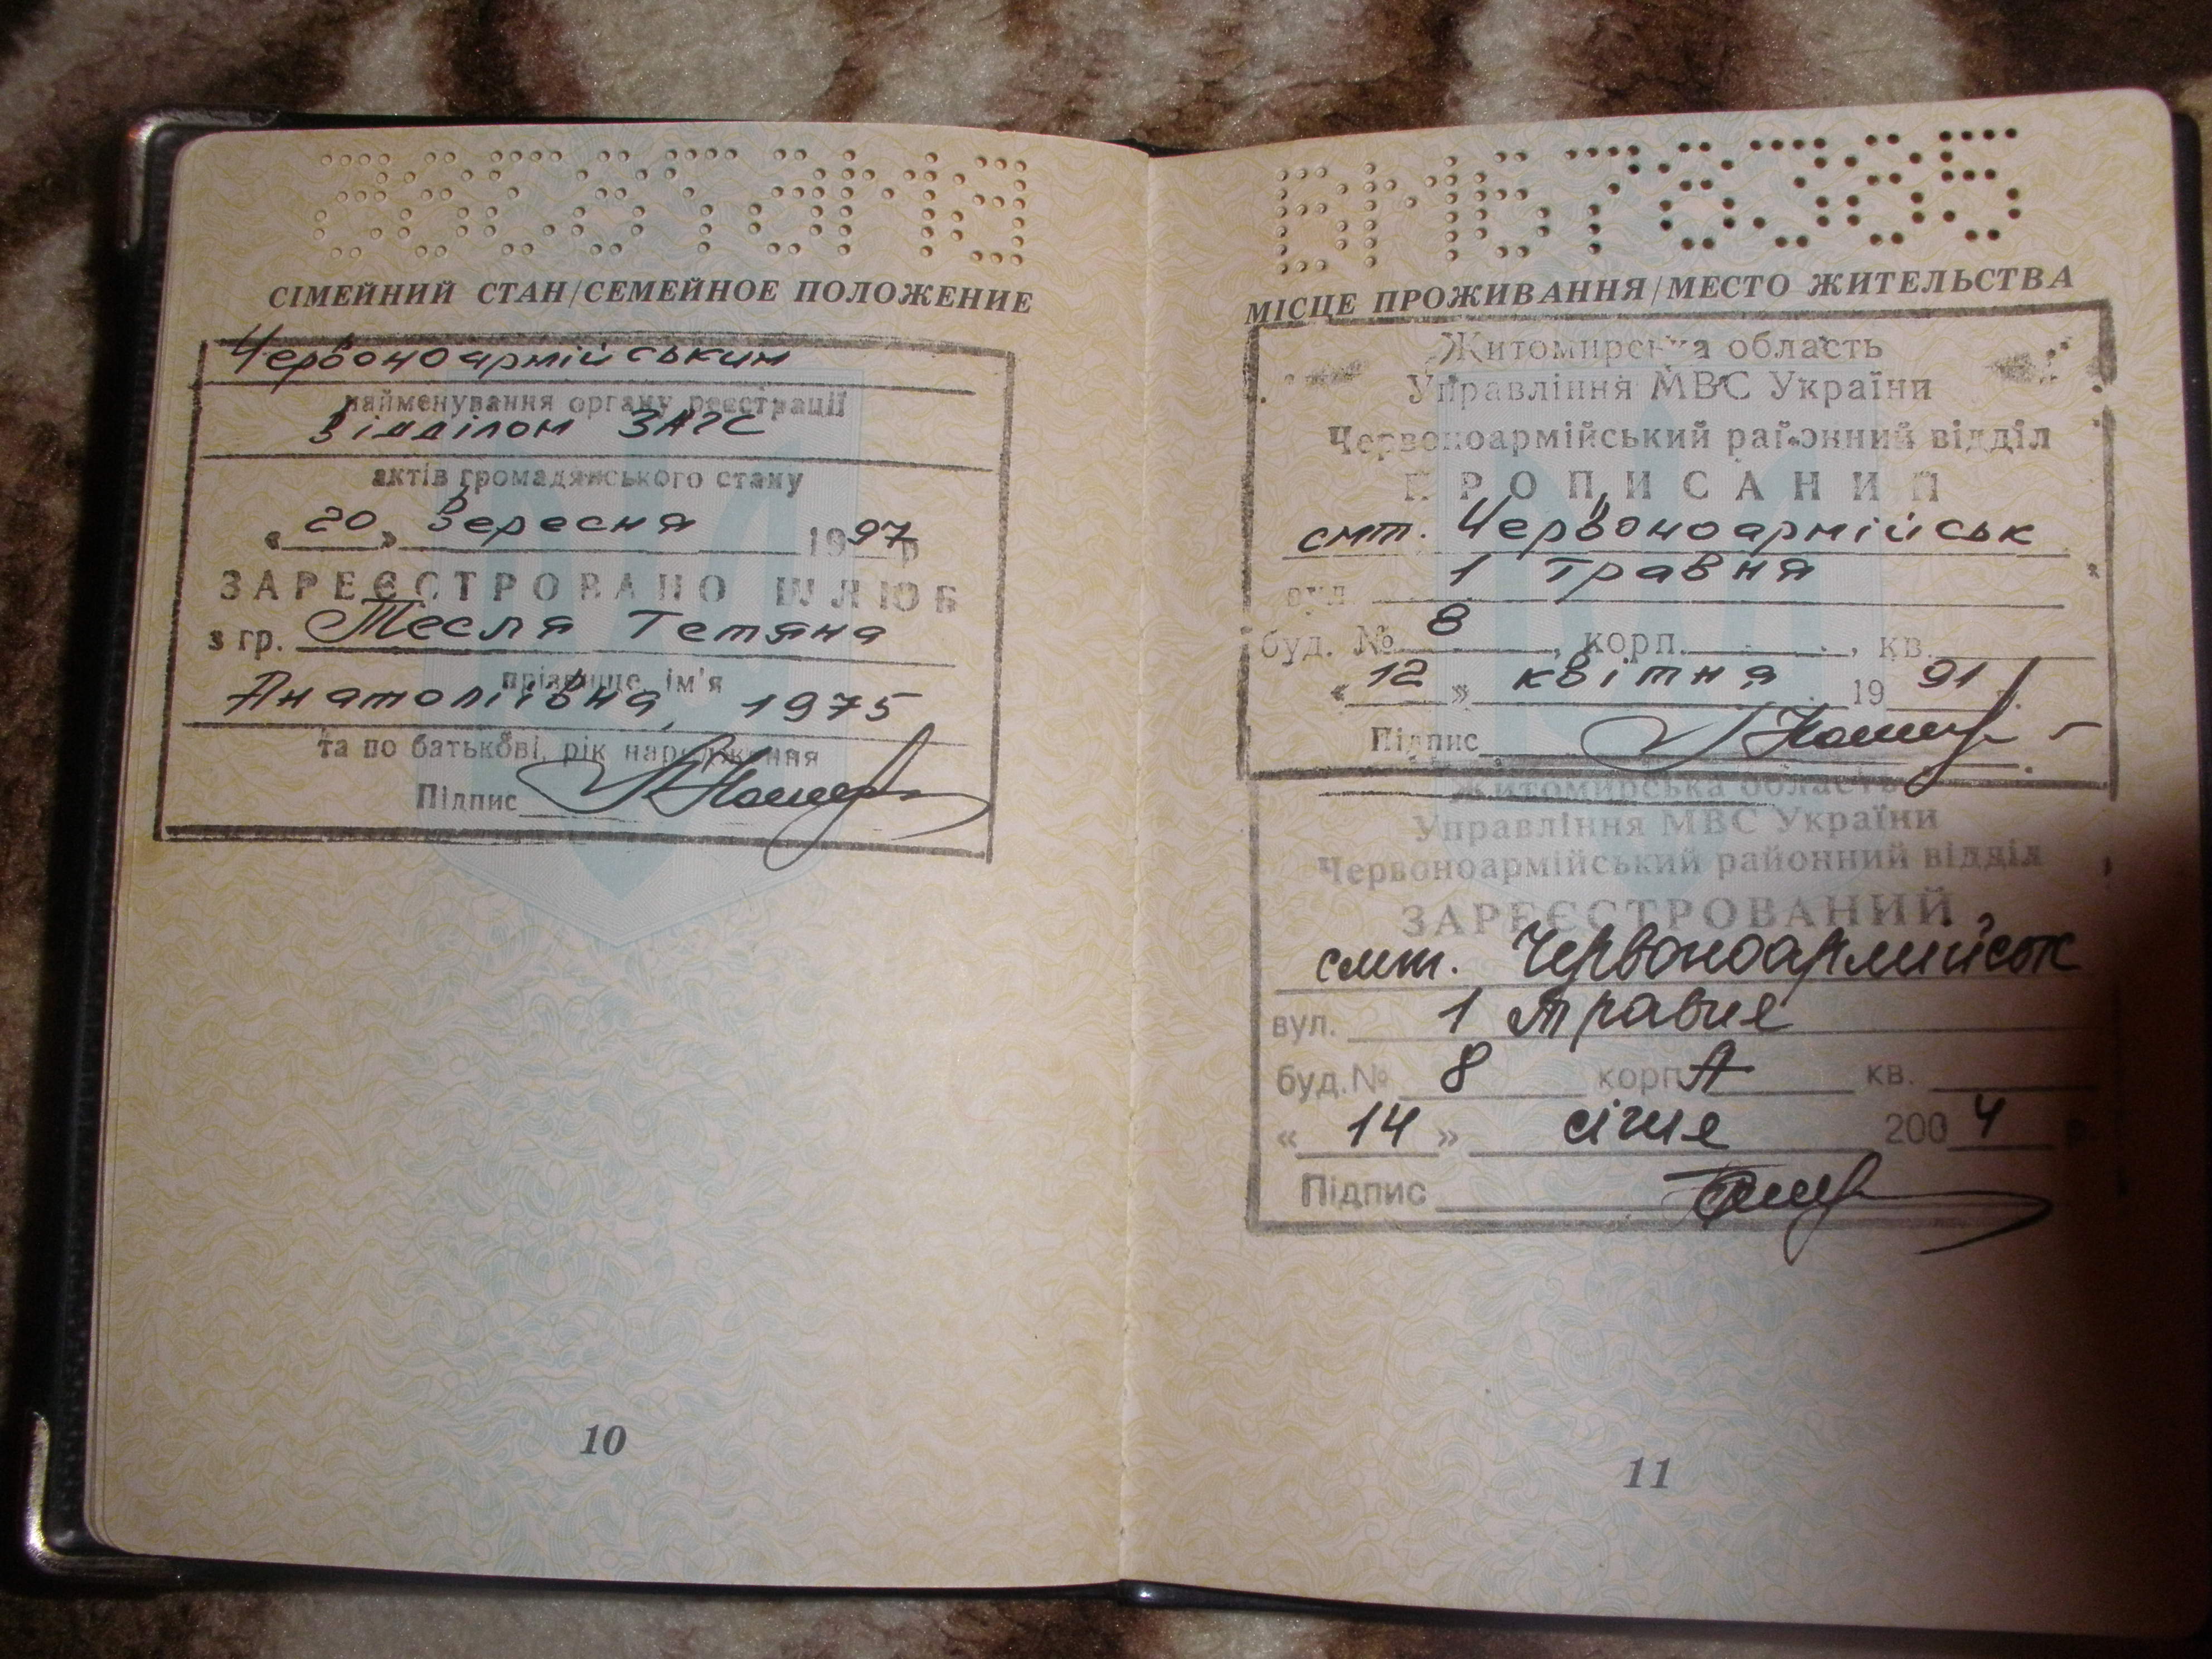 СІМЕЙНИЙ СТАН/СЕМЕЙНОЕ ПОЛОЖЕНИЕ
Червоноармійським
найменування органу реєстрації
відділом ЗАГС
актів громадянського стану
« 20 » вересня 1997р
ЗАРЕЄСТРОВАНО ШЛЮБ
з гр. Тесля Тетяна
прізвище, ім'я
Анатоліївна, 1975
та по батькові, рік народження
Підпис
10
ВМ678385
МІСЦЕ ПРОЖИВАННЯ/МЕСТО ЖИТЕЛЬСТВА
Житомирська область
Управління МВС України
Червоноармійський районний відділ
ПРОПИСАНИЙ
смт. Червоноармійськ
вул. 1 травня
буд. № 8, корп. , кв.
« 12 » квітня 19 91
Підпис
Житомирська область
Управління МВС України
Червоноармійський районний відділ
ЗАРЕЄСТРОВАНИЙ
смт. Червоноармійськ
вул. 1 травня
буд.№ 8 корп А кв.
« 14 » січня 200 4 р.
Підпис
11